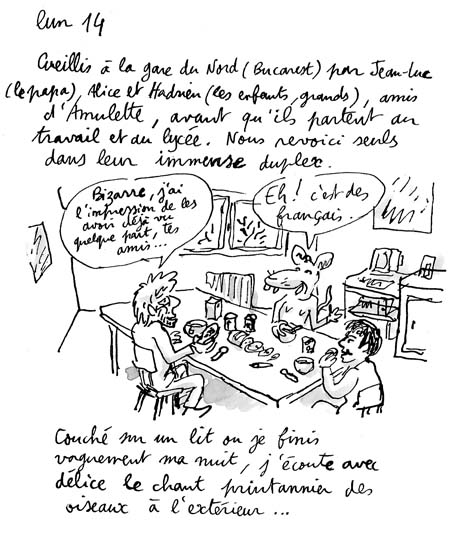 lun 14
Cueillis à la gare du Nord (Bucarest) par Jean-Luc
(le papa), Alice et Hadrien (les enfants, grands), amis
d'Amulette, avant qu'ils partent au
travail et au lycée. Nous revoici seuls
dans leur immense duplex.
Bizarre, j'ai
l'impression de les
avoir déjà vu
quelque part, tes
amis...
Eh! c'est des
français...
Couché sur un lit où je finis
vaguement ma nuit, j'écoute avec
délice le chant printannier des
oiseaux à l'extérieur...